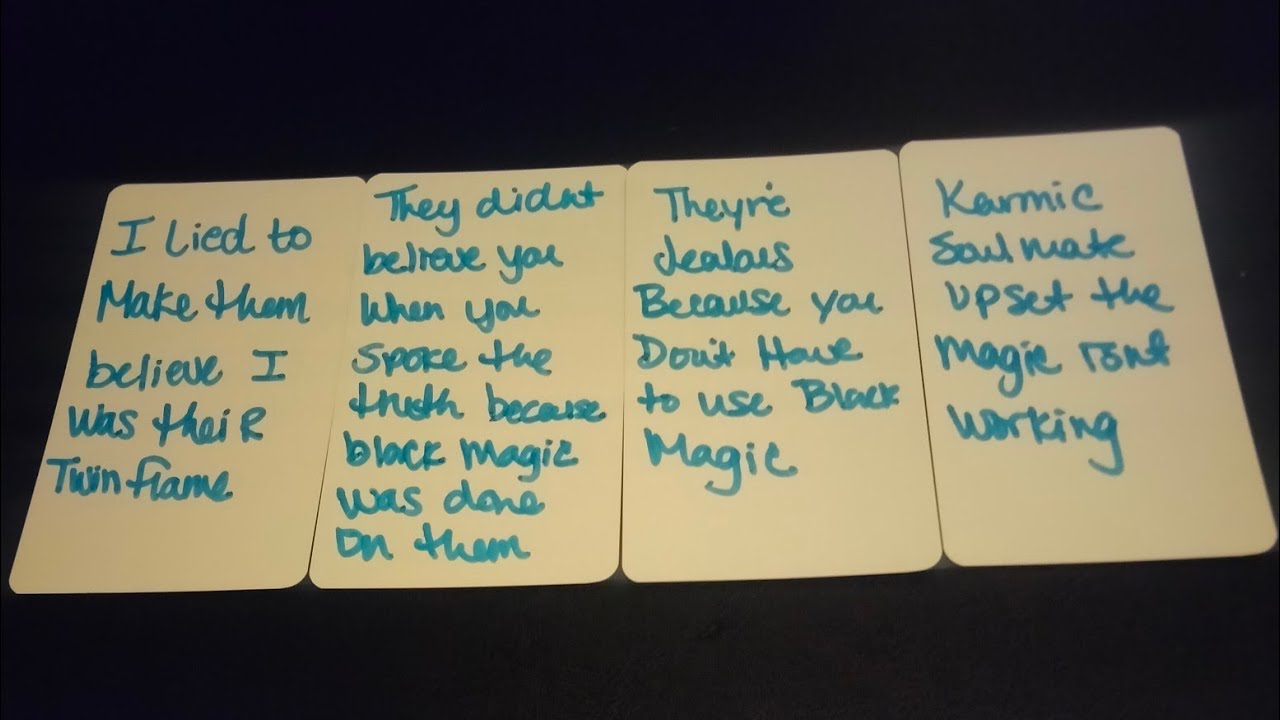 I Lied to
Make them
believe I
was theiR
Twin flame
They didnt
believe you
when you
spoke the
truth because
black magic
was done
on them
They're
Jealous
Because you
Don't Have
to use Black
Magic
Karmic
Soulmate
upset the
magic
working